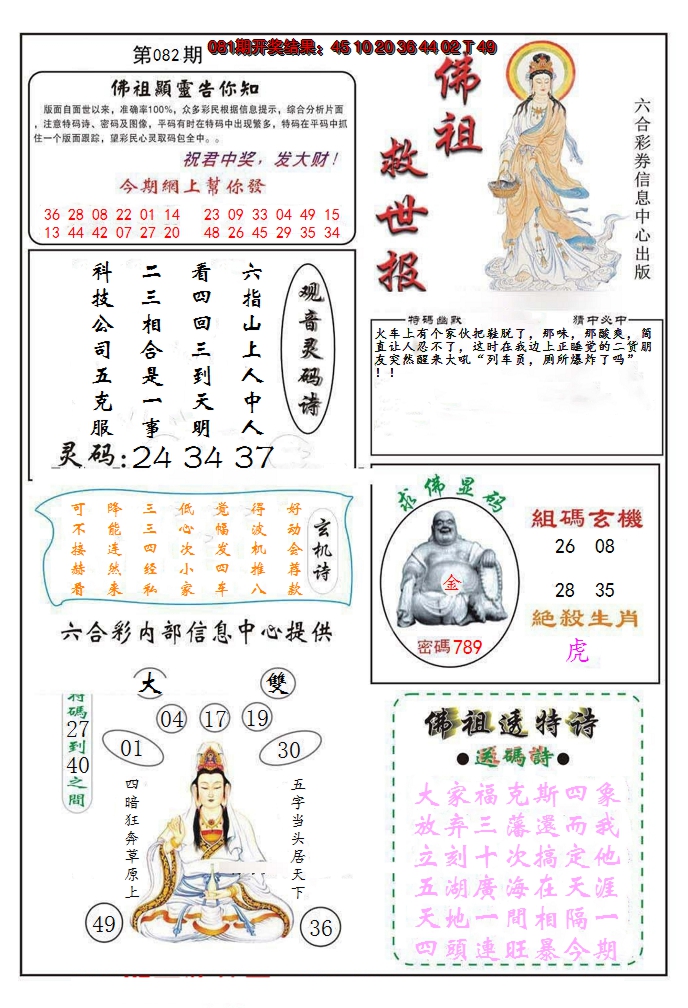 第082期
081期开奖结果：45 10 20 36 44 02 T 49
佛祖顯靈告你知
版面自面世以来，准确率100%，众多彩民根据信息提示，综合分析片面
，注意特码诗、密码及图像，平码有时在特码中出现繁多，特码在平码中抓
住一个版面跟踪，望彩民心灵取码包全中。。
祝君中奖，发大财！
今期網上幫你發
36 28 08 22 01 14 23 09 33 04 49 15
13 44 42 07 27 20 48 26 45 29 35 34
佛祖
救世报
六合彩券信息中心出版
观音灵码诗
六指山上人中人
看四回三到天明
二三相合是一事
科技公司五克服
灵码:24 34 37
特碼幽默
猜中必中
火车上有个家伙把鞋脱了，那味，那酸爽，简
直让人忍不了，这时在我边上正睡觉的二货朋
友突然醒来大吼“列车员，厕所爆炸了吗”
！！
玄机诗
好动会荐款
得波机推八
觉幅发四车
低心次小家
三三四经私
降能连然来
可不接赫看
六合彩内部信息中心提供
求佛显码
金
密碼789
組碼玄機
26 08
28 35
絕殺生肖
虎
大
雙
特碼27到40之間
04
17
19
01
30
四暗狂奔草原上
五字当头居天下
49
36
佛祖透特诗
●送碼詩●
大家福克斯四象
放弃三藩還而我
立刻十次搞定他
五湖廣海在天涯
天地一間相隔一
四頭連旺暴今期